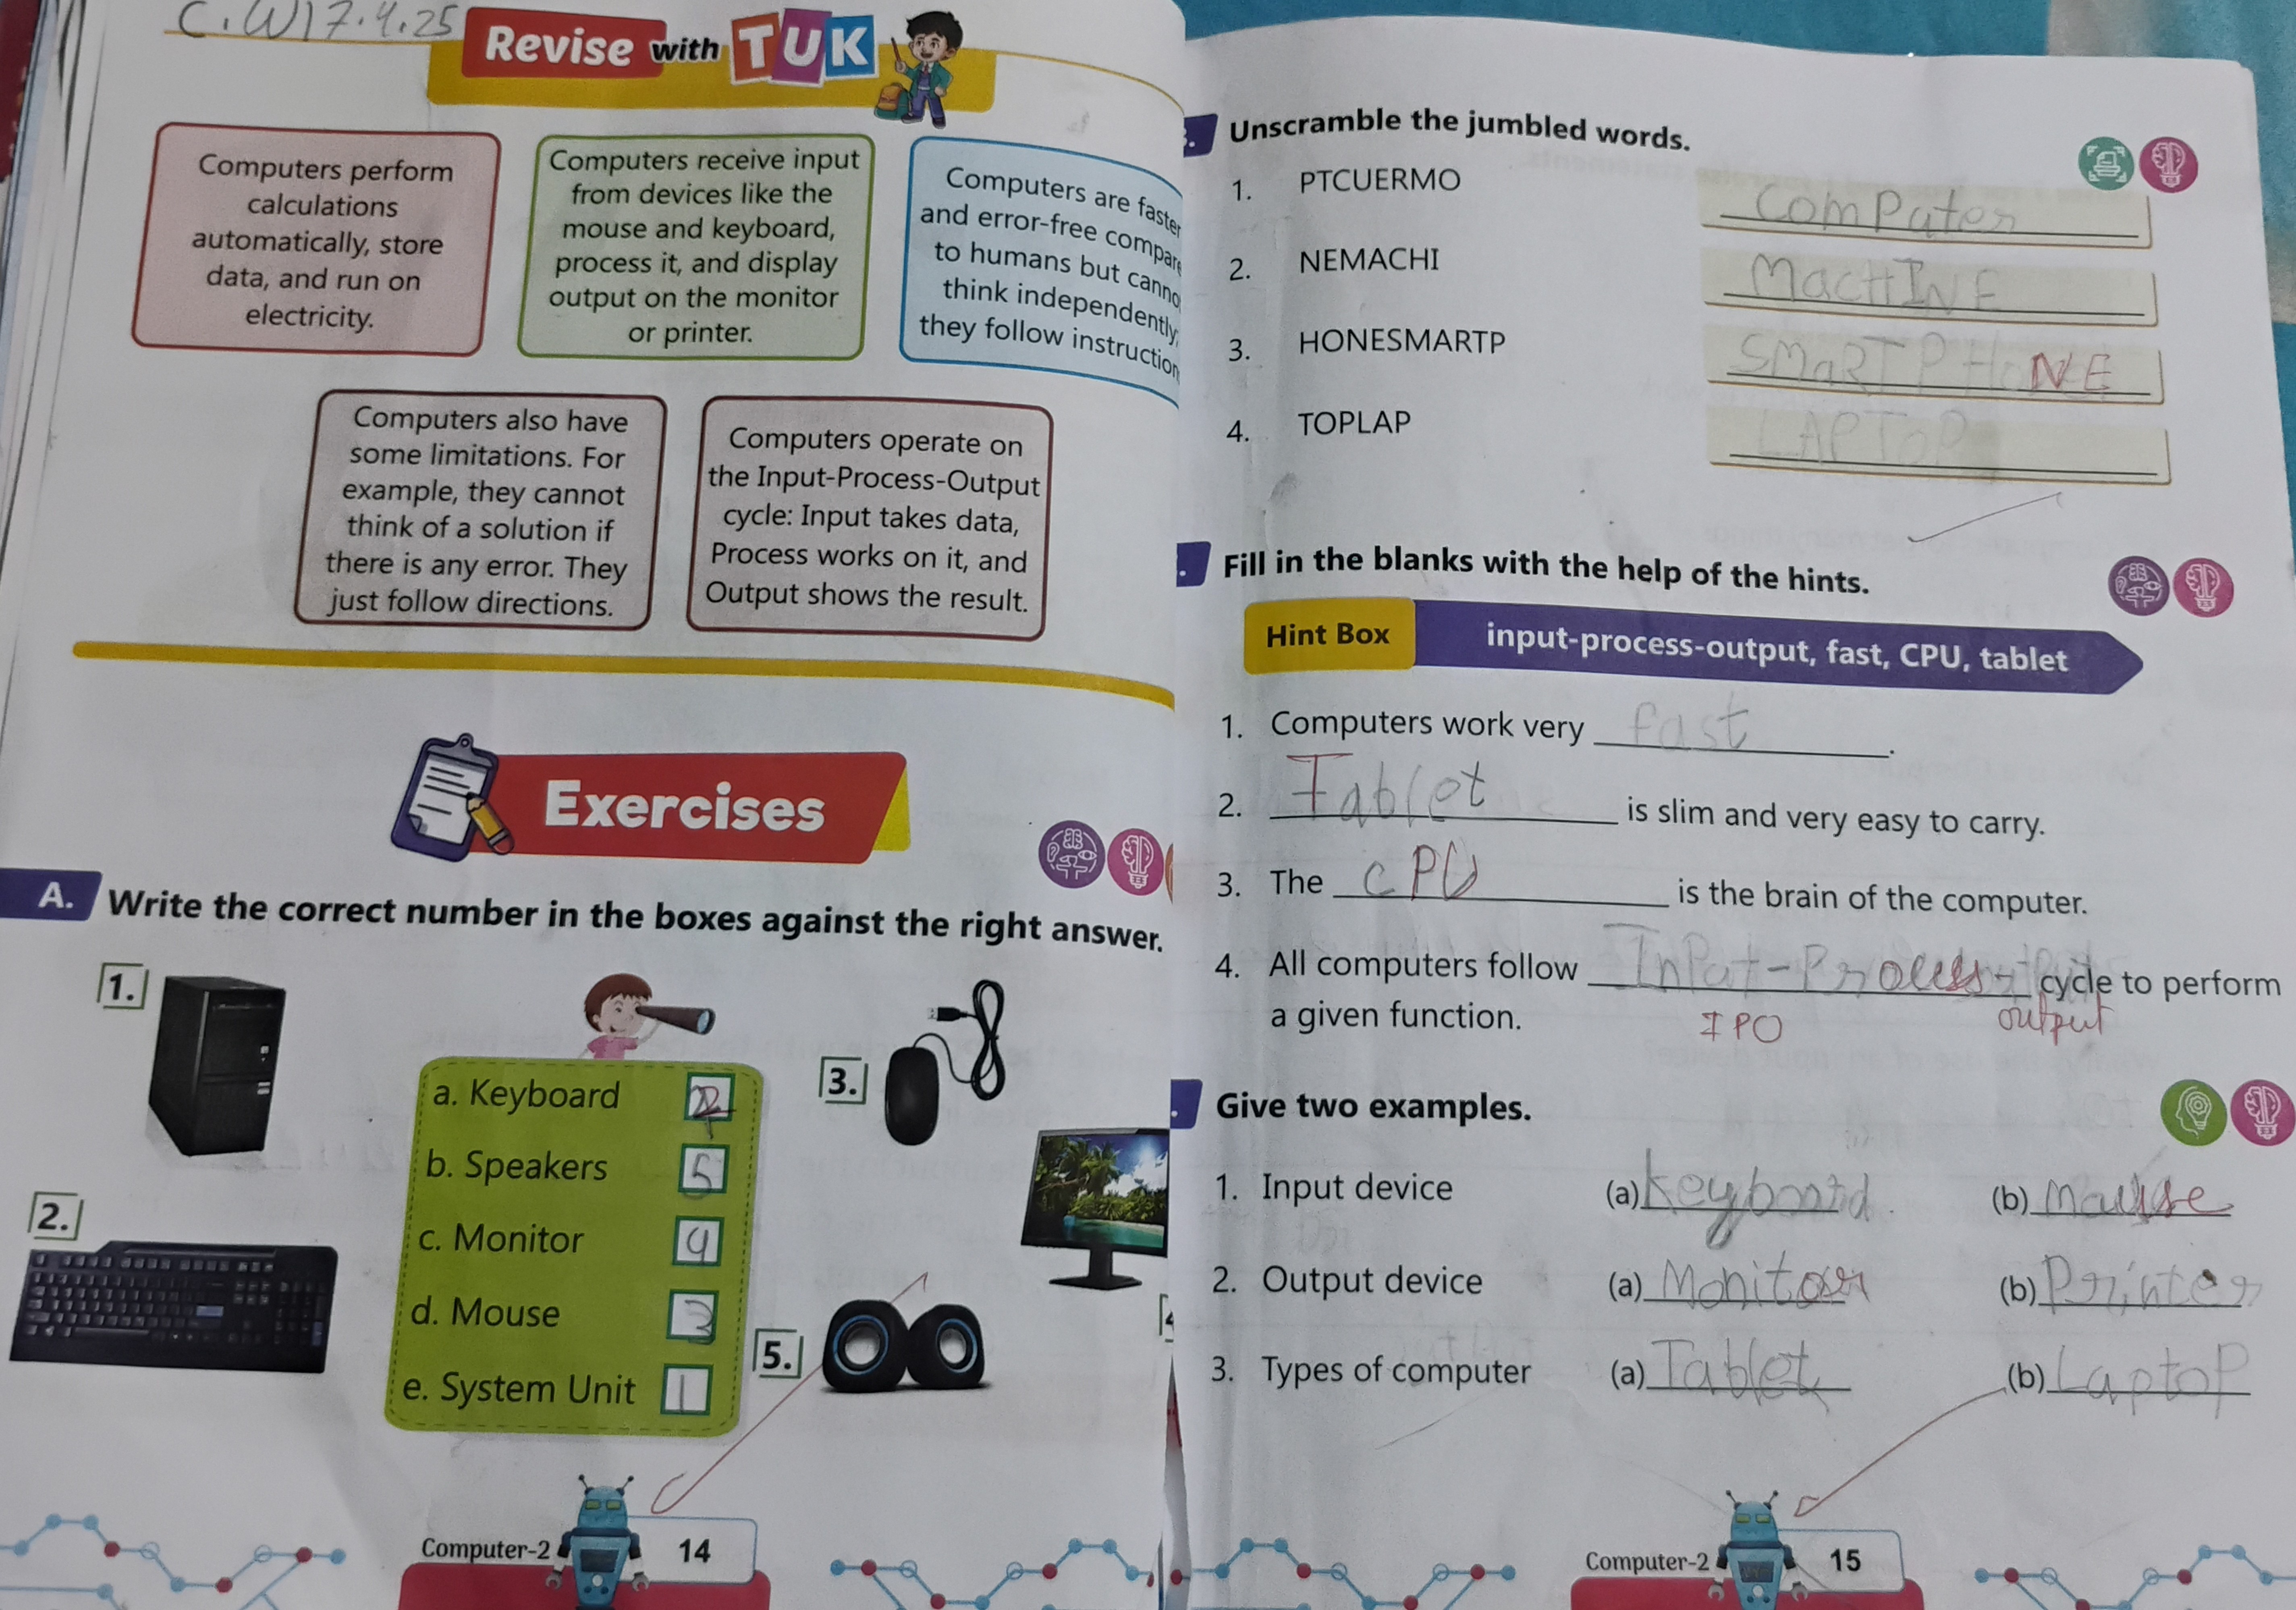 C.W 17.4.25
Revise with TUK
Computers perform
calculations
automatically, store
data, and run on
electricity.
Computers receive input
from devices like the
mouse and keyboard,
process it, and display
output on the monitor
or printer.
Computers are faster
and error-free compare
to humans but canno
think independently,
they follow instruction
Computers also have
some limitations. For
example, they cannot
think of a solution if
there is any error. They
just follow directions.
Computers operate on
the Input-Process-Output
cycle: Input takes data,
Process works on it, and
Output shows the result.
Exercises
A. Write the correct number in the boxes against the right answer.
1.
2.
3.
5.
a. Keyboard 2
b. Speakers 5
c. Monitor 4
d. Mouse 3
e. System Unit 1
Computer-2 14
Unscramble the jumbled words.
1. PTCUERMO ComPuter
2. NEMACHI MacHINE
3. HONESMARTP SMaRTPHoNE
4. TOPLAP LAPToP
Fill in the blanks with the help of the hints.
Hint Box input-process-output, fast, CPU, tablet
1. Computers work very fast.
2. Tablet is slim and very easy to carry.
3. The CPU is the brain of the computer.
4. All computers follow InPut-Process- cycle to perform
output
a given function. IPO
Give two examples.
1. Input device (a) Keyboard (b) Mouse
2. Output device (a) Monitor (b) Printer
3. Types of computer (a) Tablet (b) LaptoP
Computer-2 15